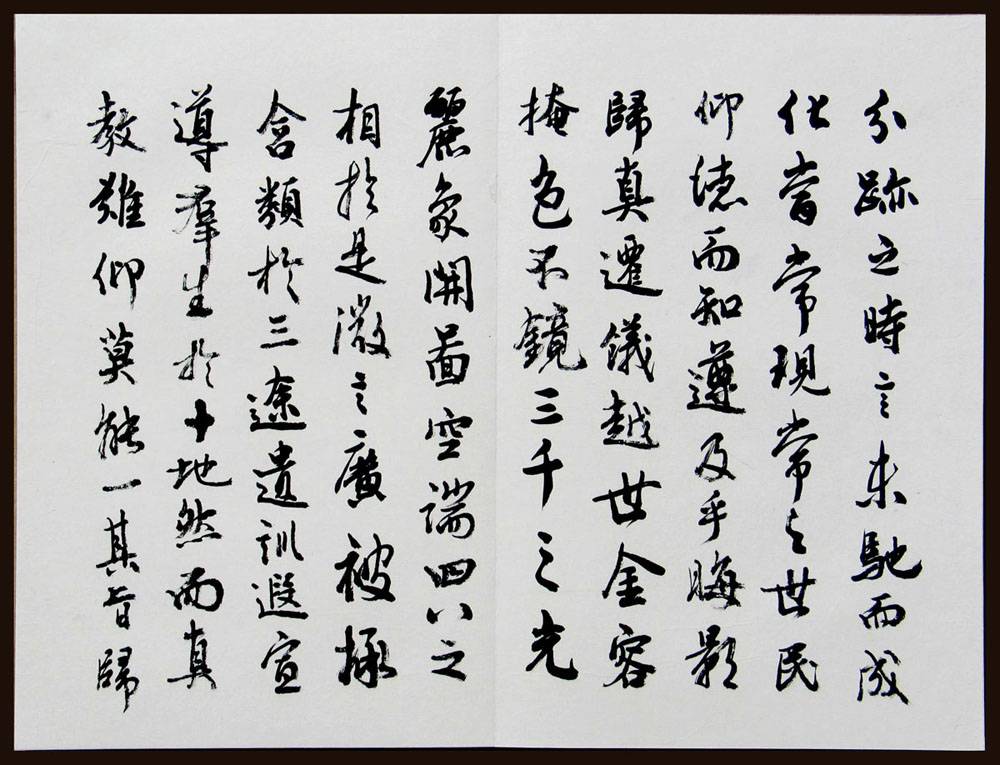 分跡之時言未馳而成
化當常現常之世民
仰德而知遵及乎晦影
歸真遷儀越世金容
掩色不鏡三千之光
麗象開圖空端四八之
相於是微言廣被拯
含類於三途遺訓遐宣
導羣生於十地然而真
教難仰莫能一其旨歸